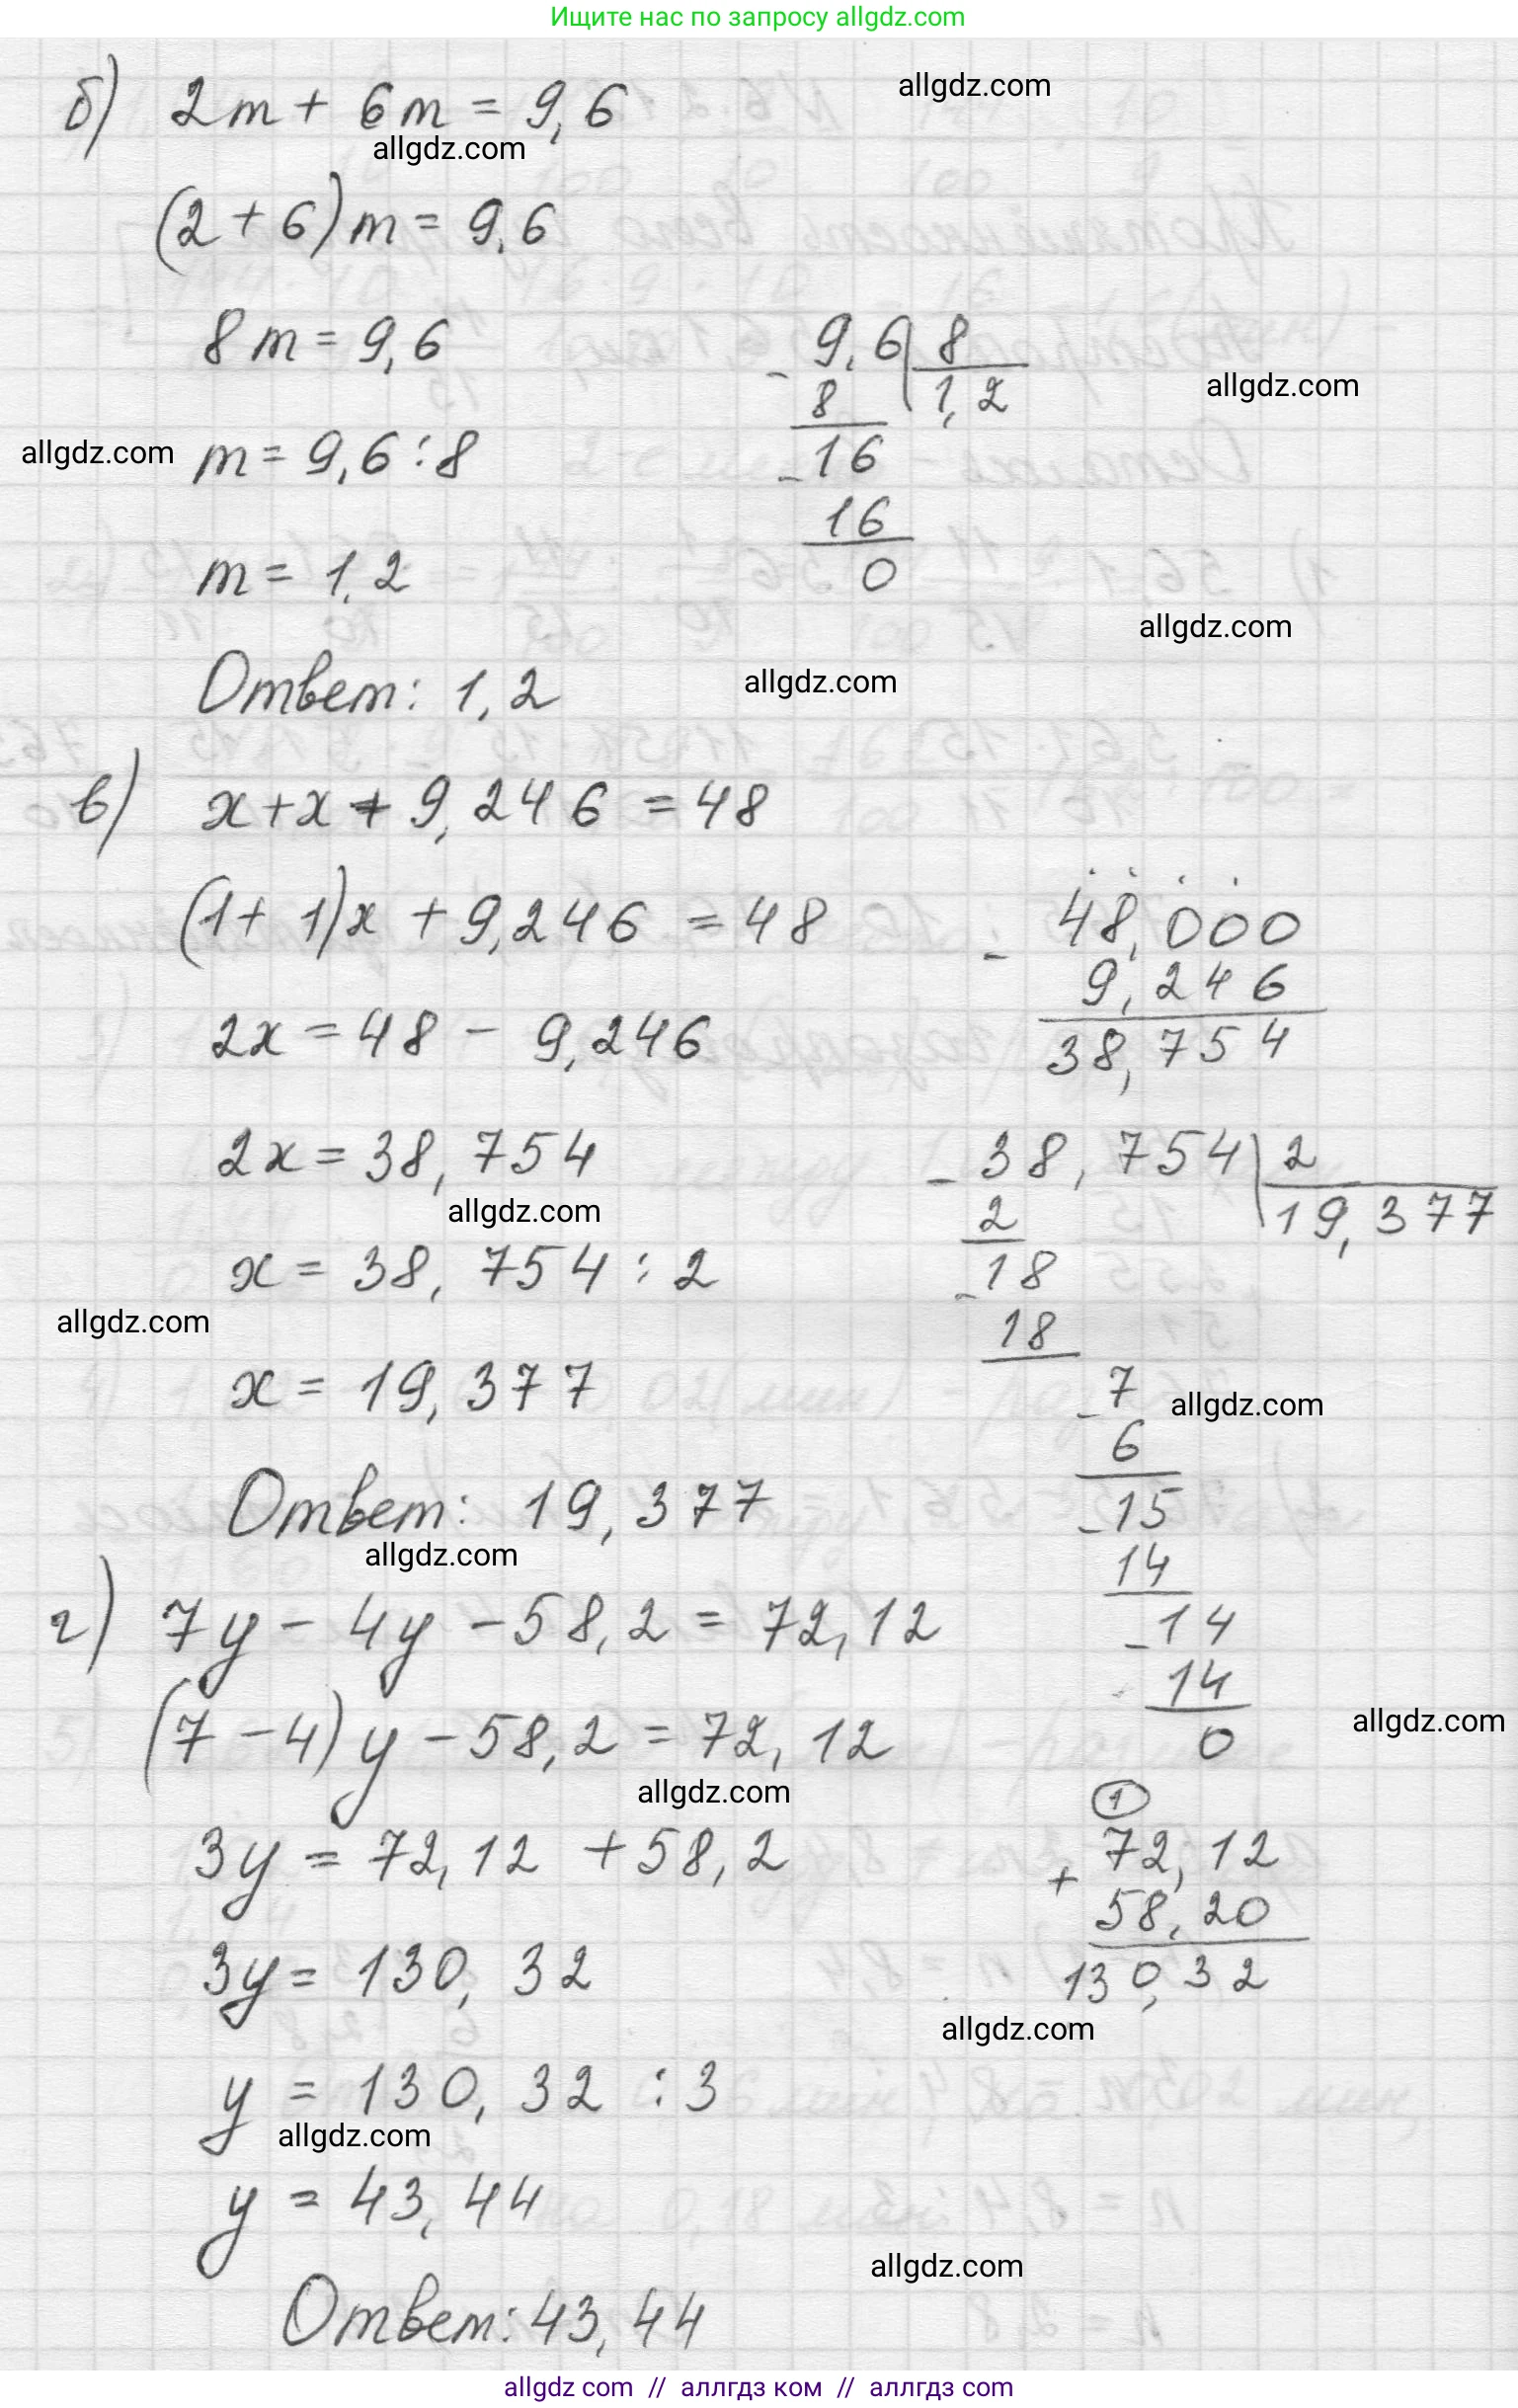 Ищите нас по запросу allgdz.com
б) 2m + 6m = 9,6
allgdz.com
allgdz.com
(2 + 6)m = 9,6
8m = 9,6
m = 9,6 : 8
m = 1,2
Ответ: 1,2
- 9,6 | 8
8 1,2
- 16
16
0
allgdz.com
allgdz.com
allgdz.com
allgdz.com
в) x + x + 9,246 = 48
(1 + 1)x + 9,246 = 48
2x = 48 - 9,246
2x = 38,754
allgdz.com
x = 38,754 : 2
allgdz.com
x = 19,377
Ответ: 19,377
allgdz.com
- 48,000
9,246
38,754
- 38,754 | 2
2 19,377
- 18
18
- 7
6
- 15
14
- 14
14
0
allgdz.com
allgdz.com
г) 7y - 4y - 58,2 = 72,12
(7 - 4)y - 58,2 = 72,12
allgdz.com
3y = 72,12 + 58,2
3y = 130,32
y = 130,32 : 3
allgdz.com
y = 43,44
Ответ: 43,44
1
+ 72,12
58,20
130,32
allgdz.com
allgdz.com
allgdz com // аллгдз ком // аллгдз com